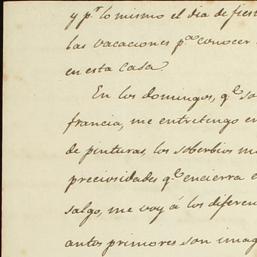 y pr. lo mismo el dia de fies
las vacaciones pa. conocer
en esta casa.
En los domingos, qe. sa
francia, me entretengo en
de pinturas, los soberbios m
preciosidades qe. encierra e
salgo, me voy á los diferen
antos primores son imag